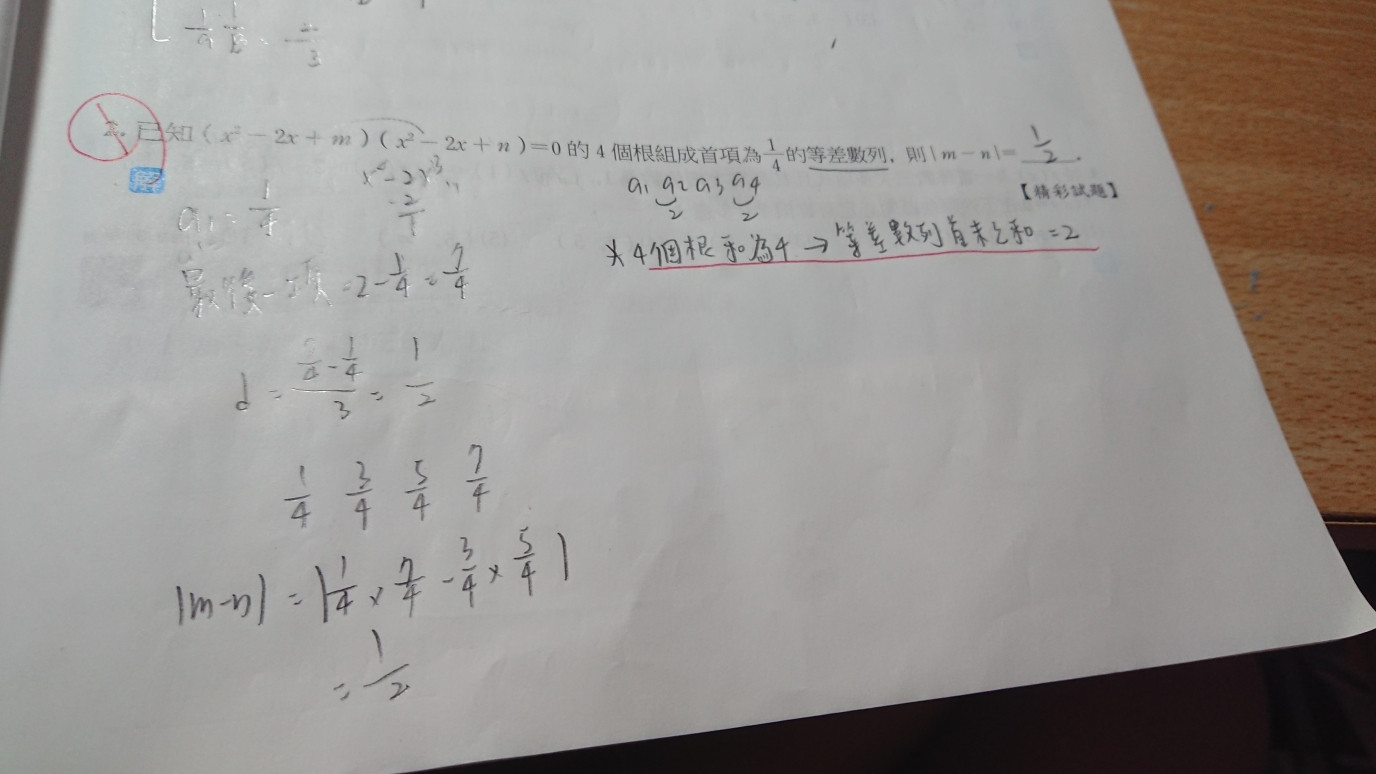 1/a 1/b = -2/3
2. 已知(x²-2x+m)(x²-2x+n)=0的4個根組成首項為1/4的等差數列,則|m-n|= 1/2 .
【精彩試題】
解
a₁ = 1/4
x²-2x
-2/1
a₁ a₂ a₃ a₄
2 2
*4個根和為4→等差數列首末之和=2
最後一項=2-1/4=7/4
1/4 3/4 5/4 7/4
|m-n| = |1/4×7/4-3/4×5/4|
= 1/2